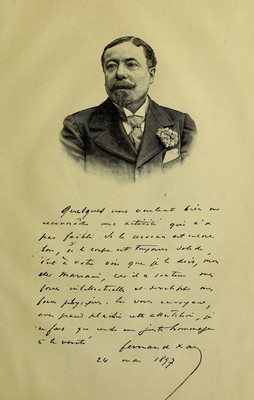 Quelques uns veulent bien me
reconnaître une activité qui n'a
pas faibli. Si le cerveau est encore
bon, si le corps est toujours solide
c'est à votre vin que je le dois, mon
cher Mariani, car il a soutenu ma
force intellectuelle et développé ma
force physique. Je vous envoie,
avec grand plaisir cette attestation, je
ne fais que rendre un juste hommage
à la vérité
Fernand Xau
24 mai 1897